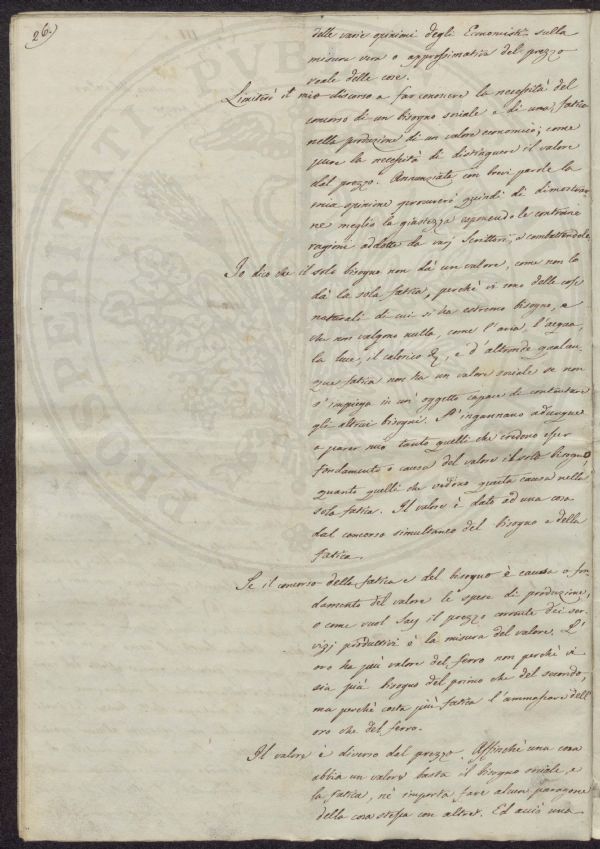 26.)
delle varie opinioni degli Economisti sulla
misura vera o approssimativa del prezzo
reale delle cose.
Limiterò il mio discorso a far conoscere la necessità del
concorso di un bisogno sociale e di una fatica
nella produzione di un valore economico; come
pure la necessità di distinguere il valore
dal prezzo. Annunziata con brevi parole la
mia opinione procurerò quindi di dimostrar
ne meglio la giustezza esponendo le contrarie
ragioni addotte da varj Scrittori, e combattendole.
Io dico che il solo bisogno non dà un valore, come non lo
dà la sola fatica, perchè vi sono delle cose
naturali di cui si ha estremo bisogno, e
che non valgono nulla, come l'aria, l'acqua,
la luce, il calorico &, e d'altronde qualun-
que fatica non ha un valore sociale se non
s'impiega in un oggetto capace di contentare
gli altrui bisogni. S'ingannano adunque
a parer mio tanto quelli che credono esser
fondamento o causa del valore il solo bisogno,
quanto quelli che vedono questa causa nella
sola fatica. Il valore è dato ad una cosa
dal concorso simultaneo del bisogno e della
fatica.
Se il concorso della fatica e del bisogno è causa o fon-
damento del valore le spese di produzione,
o come vuol Say il prezzo corrente dei ser-
vizj produttivi è la misura del valore. L'
oro ha più valore del ferro non perchè vi
sia più bisogno del primo che del secondo,
ma perchè costa più fatica l'ammassare dell'
oro che del ferro.
Il valore è diverso dal prezzo. Affinchè una cosa
abbia un valore basta il bisogno sociale, e
la fatica, nè importa fare alcun paragone
della cosa stessa con altre. Ed acciò una
PROSPERITATI PUBL